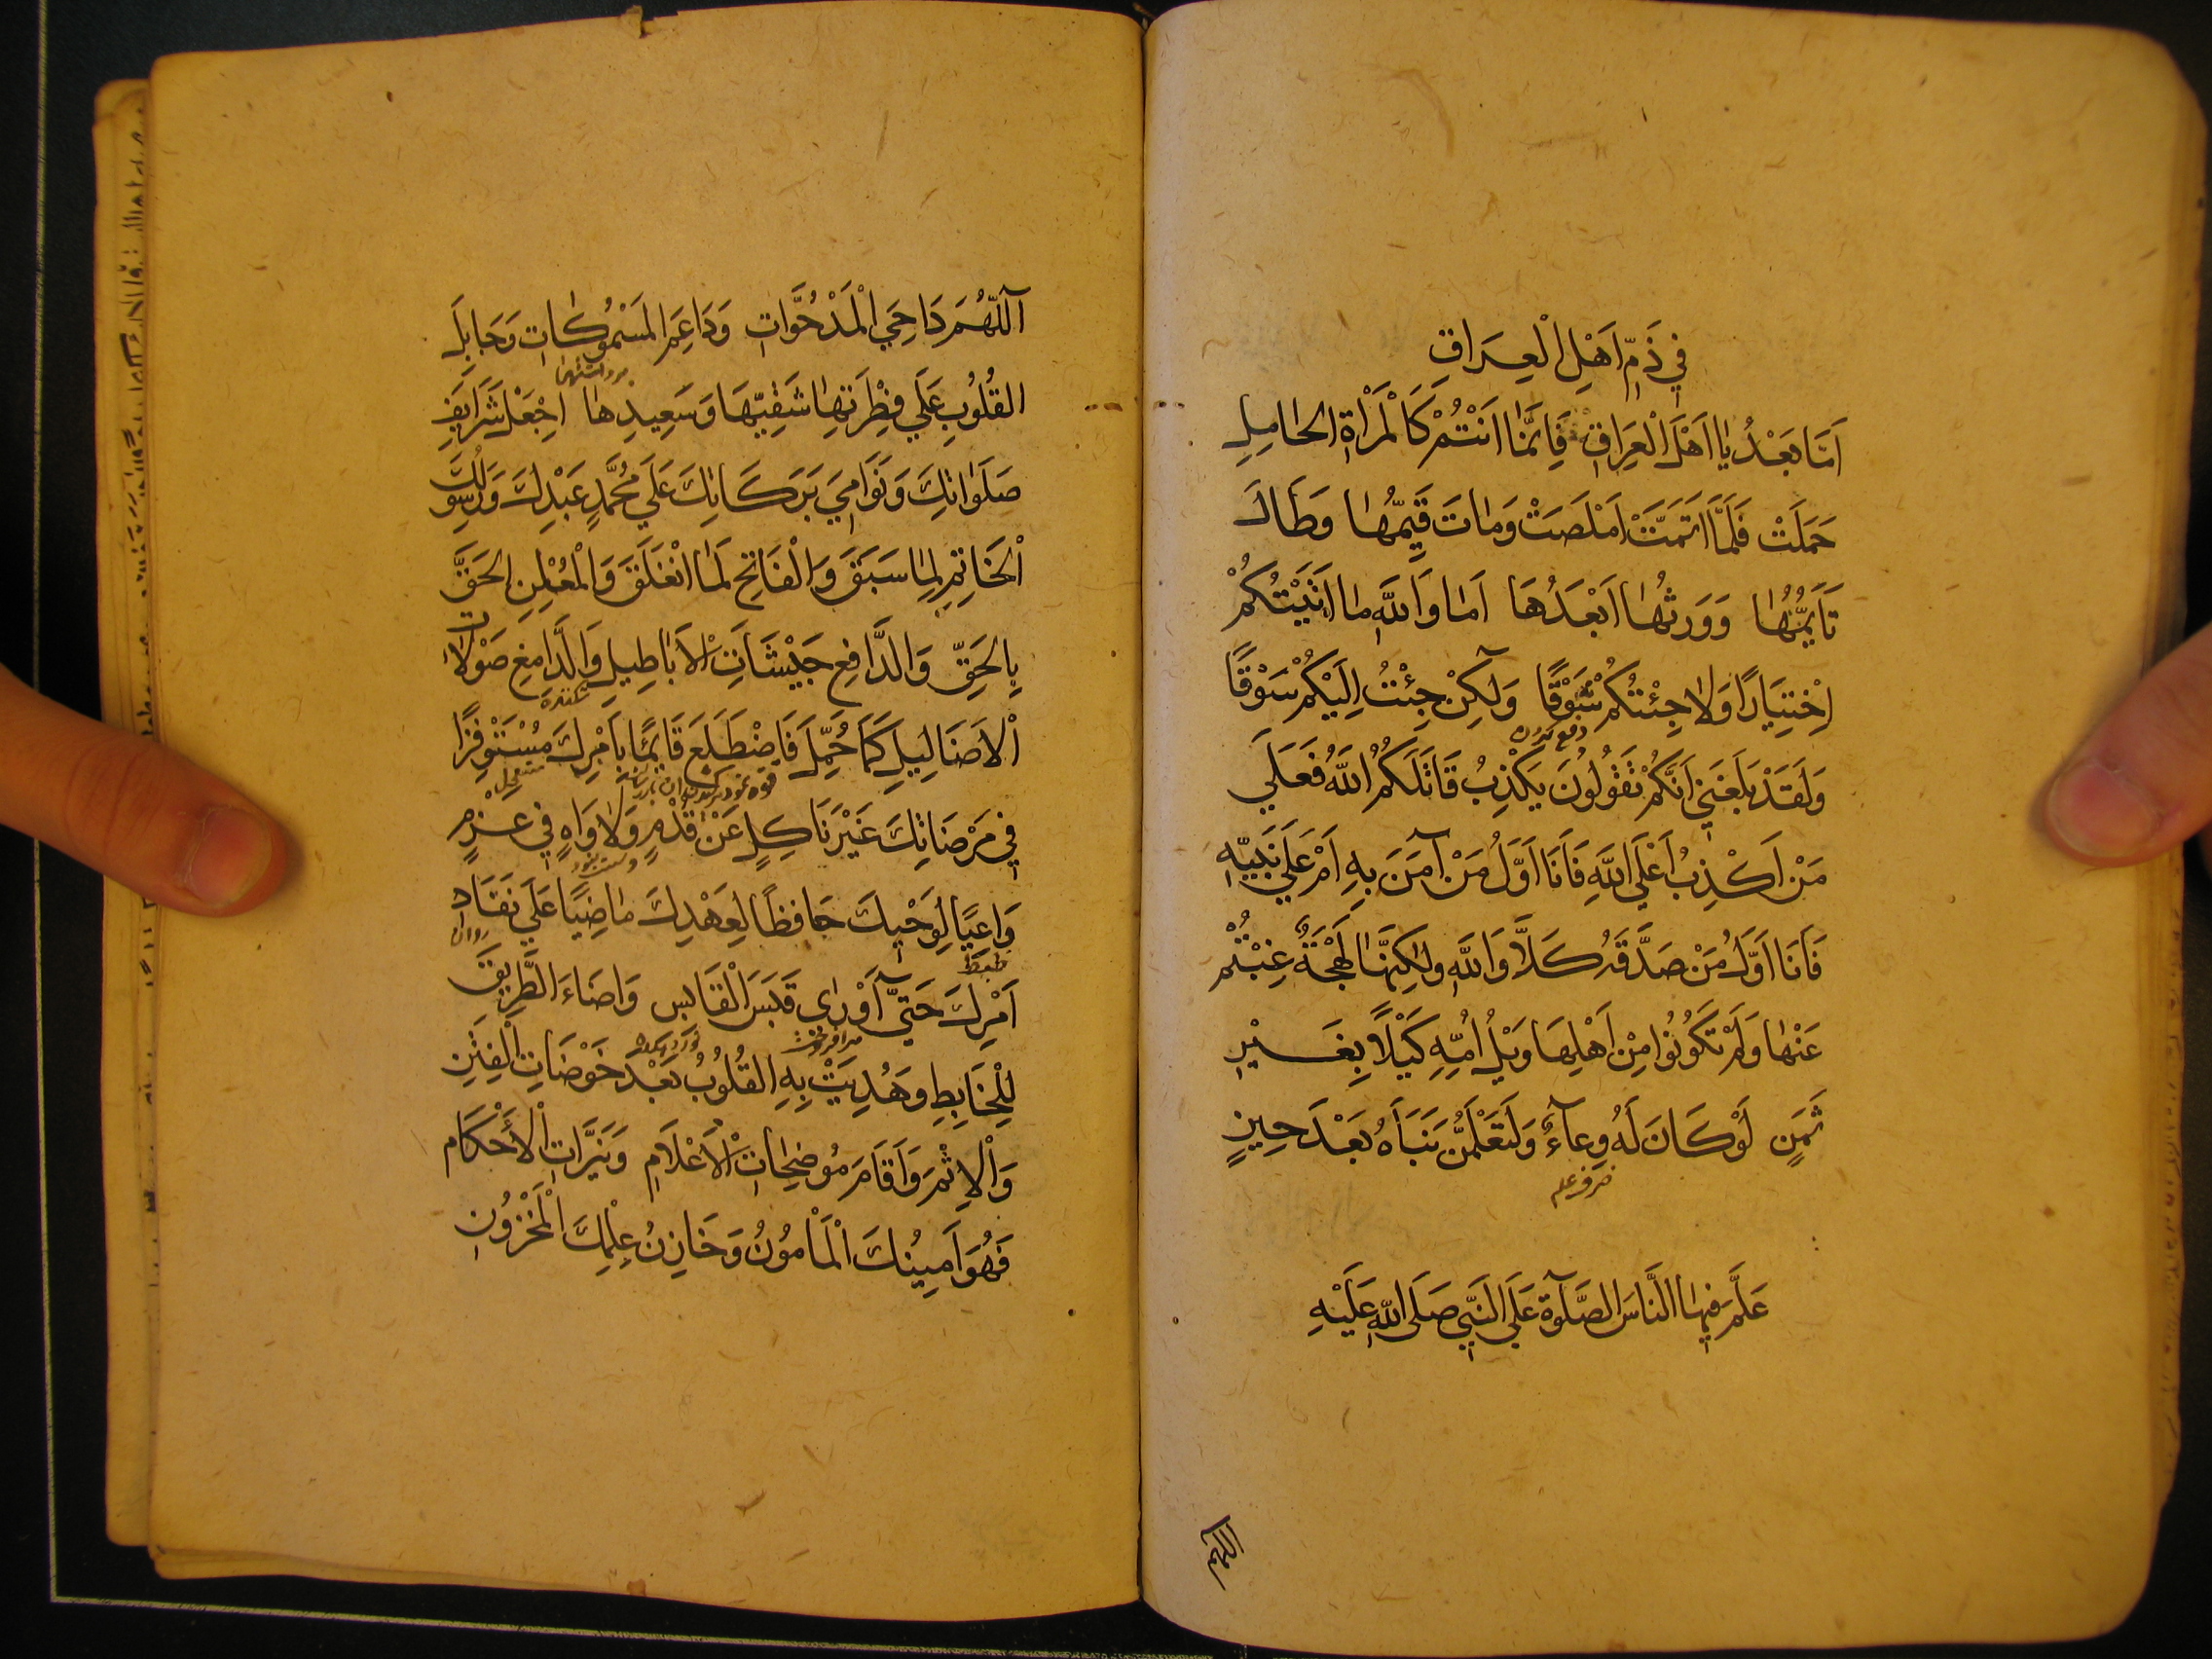 في ذَمِّ اَهْلِ الْعِرَاقِ
اَمَّا بَعْدُ يٰا اَهْلَ الْعِرَاقِ فَاِنَّمٰا اَنْتُمْ كَالْمَرْاَةِ الحٰامِلِ
حَمَلَتْ فَلَمَّا اَتَمَّتْ اَمْلَصَتْ وَمٰاتَ قَيِّمُهٰا وَطَالَ
تَاَيُّمُهٰا وَوَرِثَهٰا اَبْعَدُهَا اَمٰا وَاللّٰهِ مٰا اَتَيْتُكُمْ
اِخْتِيَارًا وَلٰا جِئْتُكُمْ شَوْقًا وَلٰكِنْ جِئْتُ اِلَيْكُمْ سَوْقًا
وَلَقَدْ بَلَغَنِي اَنَّكُمْ تَقُولُونَ يَكْذِبُ قَاتَلَكُمُ اللّٰهُ فَعَلَي
مَنْ اَكْذِبُ اَعَلَي اللّٰهِ فَاَنَا اَوَّلُ مَنْ آمَنَ بِهِ اَمْ عَلَي نَبِيِّهِ
فَاَنَا اَوَّلُ مَنْ صَدَّقَهُ كَلَّا وَاللّٰهِ وَلٰكِنَّهٰا لَهْجَةٌ غِبْتُمْ
عَنْهٰا وَلَمْ تَكُونُوا مِنْ اَهْلِهَا وَيْلُ اُمِّهِ كَيْلًا بِغَيْرِ
ثَمَنٍ لَوْ كَانَ لَهُ وِعآءٌ وَلَتَعْلَمُنَّ نَبَاَهُ بَعْدَ حِينٍ
عَلَّمَ فِيهٰا النَّاسَ الصَّلٰوةَ عَلَي النَّبِيِّ صَلَي اللّٰهِ عَلَيْهِ
اللهم
اَللّٰهُمَّ دَاحِيَ الْمَدْحُوَّاتِ وَدَاعِمَ المَسْمُوكَاتِ وَجَابِلَ
القُلُوبِ عَلَي فِطْرَتِهٰا شَقِيِّهَا وَسَعِيدِهٰا اجْعَلْ شَرَايِفَ
صَلَوٰاتِكَ وَنَوَامِيَ بَرَكَاتِكَ عَلَي مُحَمَّدٍ عَبْدِكَ وَرَسُولِكَ
الْخَاتِمِ لِمٰا سَبَقَ وَالْفَاتِحِ لِمَا انْغَلَقَ وَالْمُعْلِنِ الحَقَّ
بِالحَقِّ وَالدَّافِعِ جَيْشَاتِ الْاَبٰاطِيلِ وَالدَّامِغِ صَوْلَاتِ
الْاَضَالِيلِ كَمَا حُمِّلَ فَاضْطَلَعَ قَايِمًا بِاَمْرِكَ مُسْتَوْفِزًا
فِي مَرْضَاتِكَ غَيْرَ نَاكِلٍ عَنْ قُدْمٍ وَلٰا وَاهٍ فِي عَزْمٍ
وَاعِيًا لِوَحْيِكَ حَافِظًا لِعَهْدِكَ مٰاضِيًا عَلَي نَفَاذِ
اَمْرِكَ حَتَّي اَوْرٰى قَبَسَ الْقَابِسِ وَاَضَاءَ الطَّرِيقَ
لِلْخَابِطِ وَهُدِيَتْ بِهِ القُلُوبُ بَعْدَ خَوْضَاتِ الْفِتَنِ
وَالْاِثْمِ وَاَقَامَ مُوضِحَاتِ الْاَعْلَامِ وَنَيِّرَاتِ الْاَحْكَامِ
فَهُوَ اَمِينُكَ الْمَاْمُونُ وَخَازِنُ عِلْمِكَ الْمَخْزُونِ